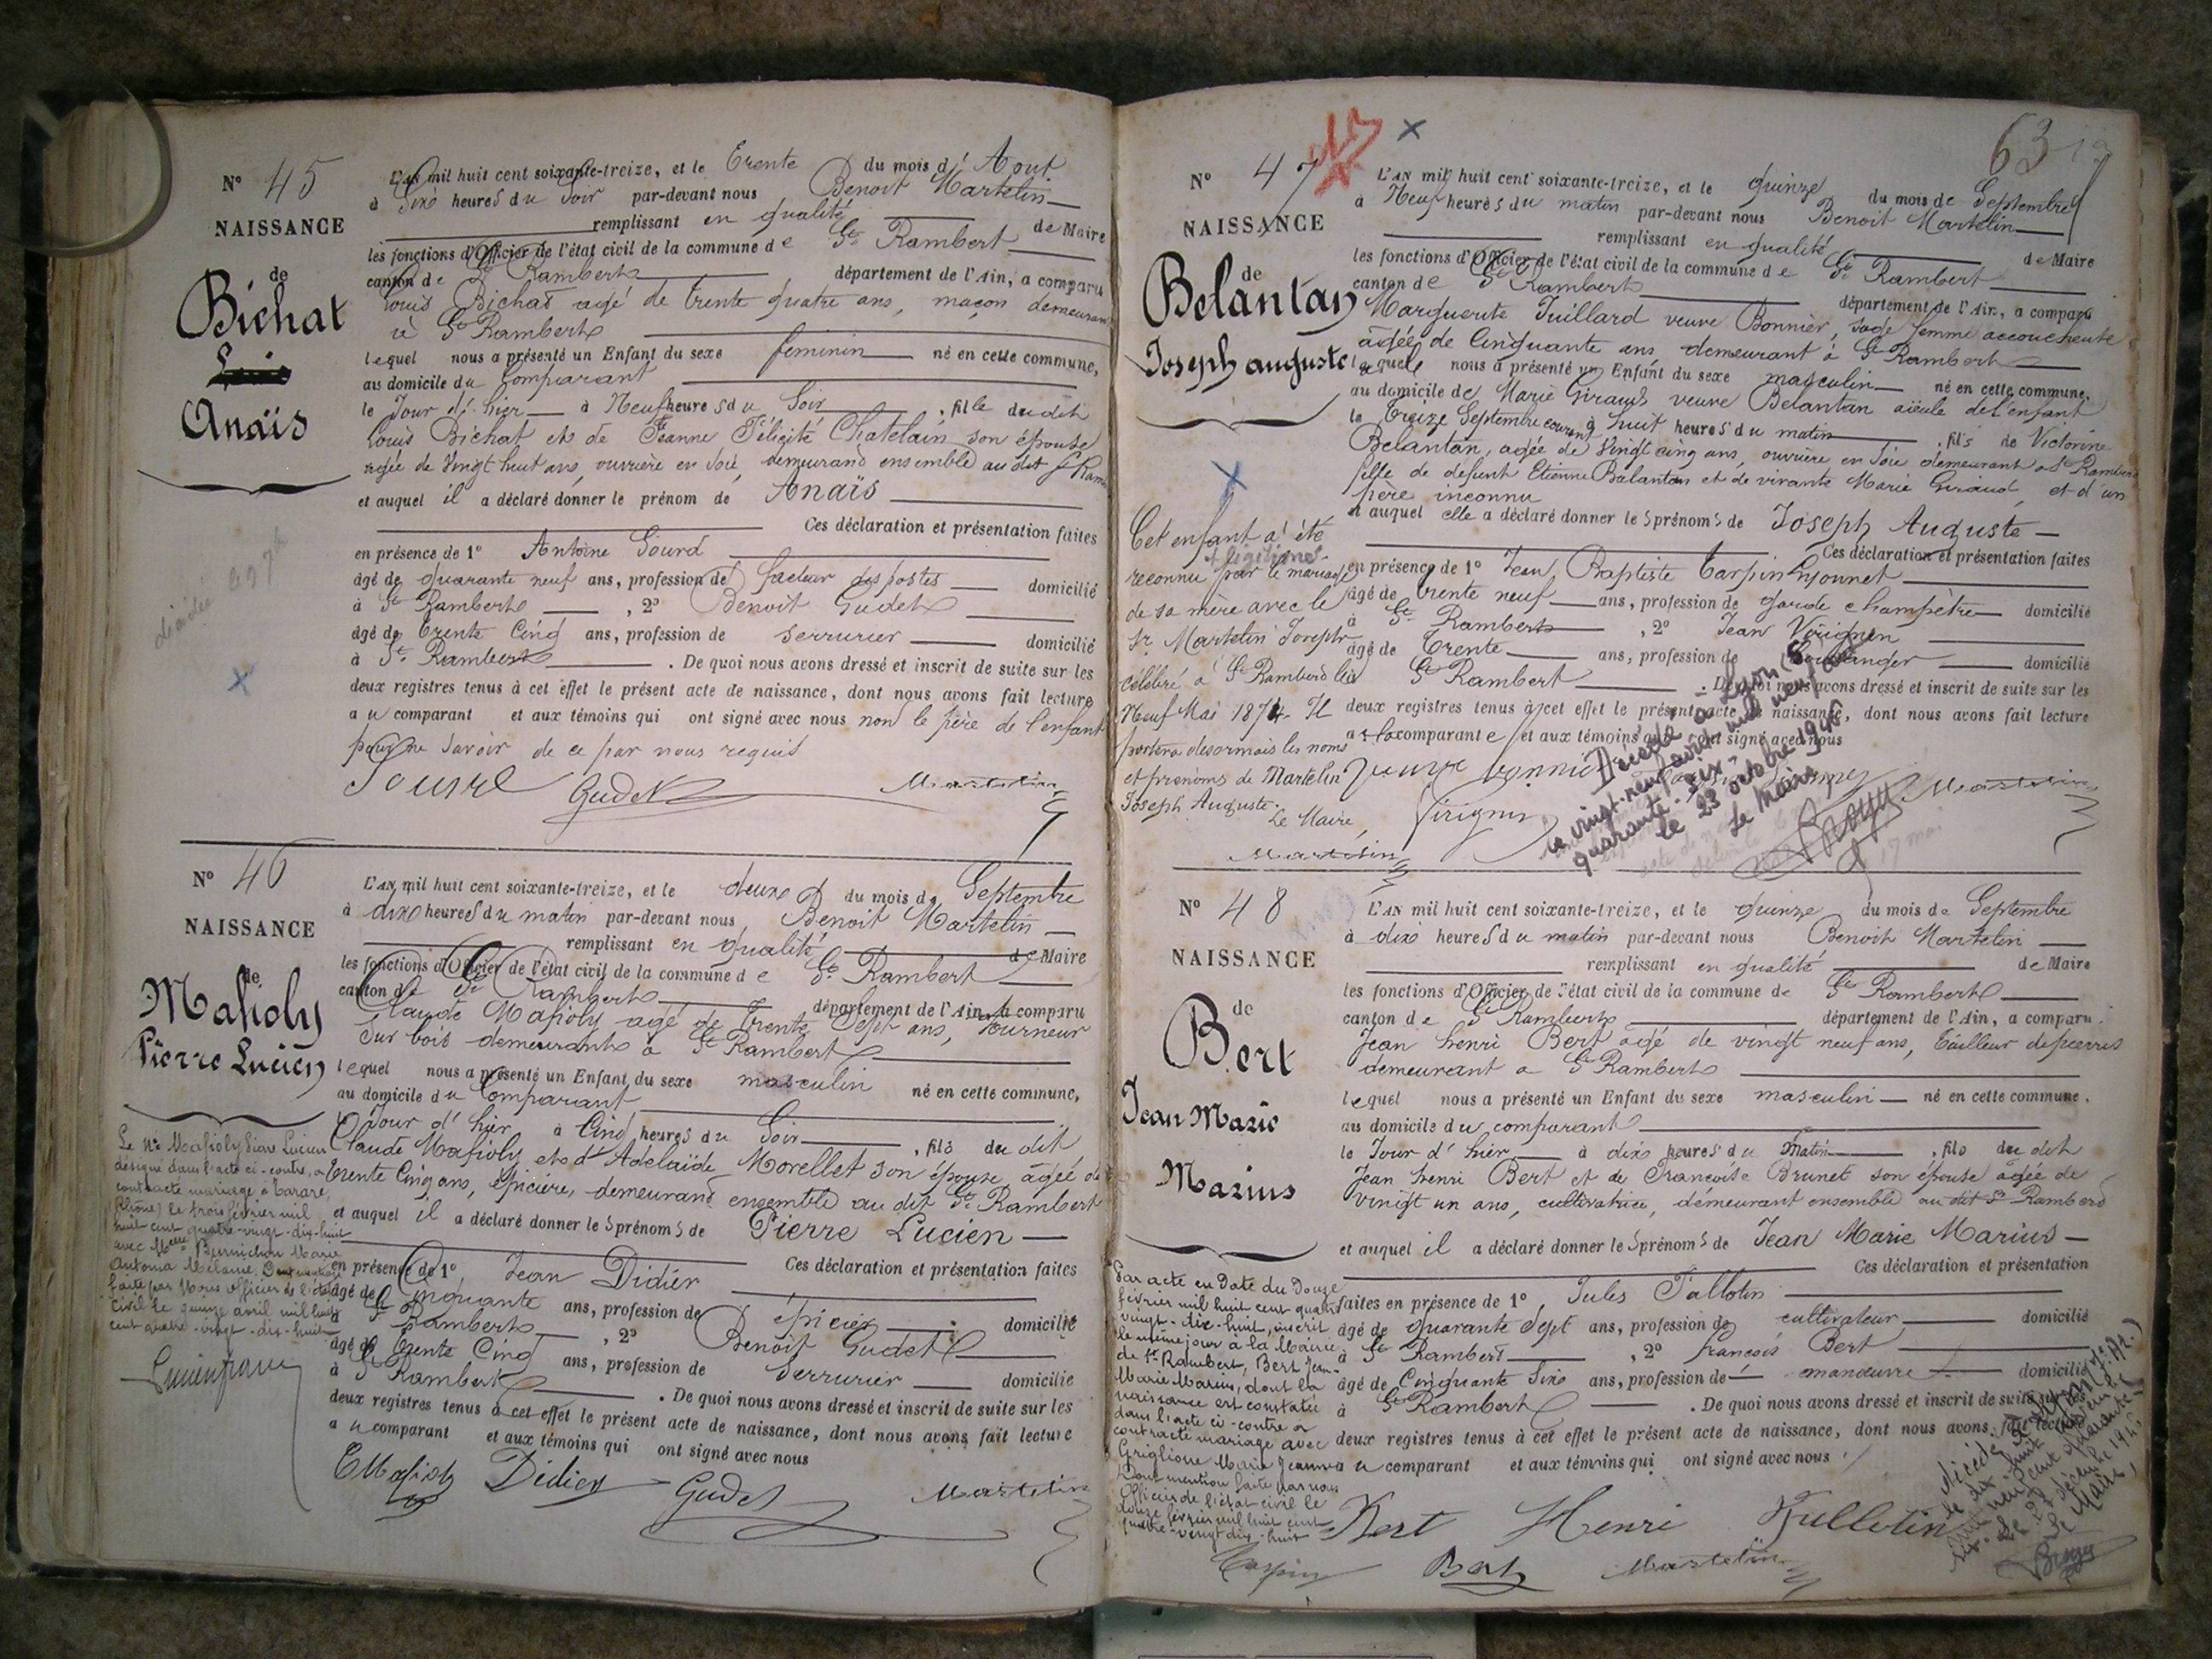 N° 45
NAISSANCE
de
Bichat
Anaïs
décédée
L'AN mil huit cent soixante-treize, et le Trente du mois d'Aout
à Six heures du Soir par-devant nous Benoit Martelin
remplissant en qualité de Maire
les fonctions d'Officier de l'état civil de la commune de St Rambert
canton de St Rambert département de l'Ain, a comparu
Louis Bichat agé de trente quatre ans, maçon demeurant
à St Rambert
lequel nous a présenté un Enfant du sexe feminin né en cette commune,
au domicile du Comparant
le Jour d'hier à Neuf heures du Soir, fille du dit
Louis Bichat et de Jeanne Félicité Chatelain son épouse
agée de Vingt huit ans, ouvrière en soie, demeurand ensemble au dit St Ramb
et auquel il a déclaré donner le prénom de Anaïs
Ces déclaration et présentation faites
en présence de 1° Antoine Gourd
âgé de quarante neuf ans, profession de facteur des postes domicilié
à St Rambert, 2° Benoit Gudet
âgé de trente Cinq ans, profession de serrurier domicilié
à St Rambert. De quoi nous avons dressé et inscrit de suite sur les
deux registres tenus à cet effet le présent acte de naissance, dont nous avons fait lecture
au comparant et aux témoins qui ont signé avec nous non le père de l'enfant
pour ne savoir de ce par nous requis
Gourd Gudet Martelin
N° 46
NAISSANCE
de
Mafioly
Pierre Lucien
L'AN mil huit cent soixante-treize, et le deux du mois de Septembre
à dix heures du matin par-devant nous Benoit Martelin
remplissant en qualité de Maire
les fonctions d'Officier de l'état civil de la commune de St Rambert
canton de St Rambert département de l'Ain, a comparu
Claude Mafioly agé de trente Sept ans, Tourneur
sur bois demeurant à St Rambert
lequel nous a présenté un Enfant du sexe masculin né en cette commune,
au domicile du Comparant
le Jour d'hier à Cinq heures du Soir, fils du dit
Claude Mafioly et d'Adelaïde Morellet son épouse agée de
trente Cinq ans, Epiciere, demeurand ensemble au dit St Rambert
et auquel il a déclaré donner les prénoms de Pierre Lucien
Ces déclaration et présentation faites
en présence de 1° Jean Didier
âgé de Cinquante ans, profession de épicier domicilié
à St Rambert, 2° Benoit Gudet
âgé de trente Cinq ans, profession de Serrurier domicilié
à St Rambert. De quoi nous avons dressé et inscrit de suite sur les
deux registres tenus à cet effet le présent acte de naissance, dont nous avons fait lecture
au comparant et aux témoins qui ont signé avec nous
Mafioly Didier Gudet Martelin
Le Mafioly Pierre Lucien
désigné dans l'acte ci-contre, a
contracté mariage à Tarare,
(Rhône) le trois février mil
huit-cent quatre-vingt-dix-huit
avec Melle Marie
Antonia Mélanie. Dont mention
faite par Nous Officier de l'état
civil le quinze avril mil huit
cent quatre-vingt-dix-huit
63
N° 47
NAISSANCE
de
Belantan
Joseph auguste
L'AN mil huit cent soixante-treize, et le quinze du mois de Septembre
à Neuf heures du matin par-devant nous Benoit Martelin
remplissant en qualité de Maire
les fonctions d'Officier de l'état civil de la commune de St Rambert
canton de St Rambert département de l'Ain, a comparu
Marguerite Juillard veuve Bonnier, sage femme accoucheute
agée de Cinquante ans, demeurant à St Rambert
laquelle nous a présenté un Enfant du sexe masculin né en cette commune,
au domicile de Marie Giraud veuve Belantan aïeule de l'enfant
le Treize Septembre courant à huit heures du matin, fils de Victorine
Belantan, agée de Vingt cinq ans, ouvrière en soie demeurant à St Rambert
fille de defunt Etienne Balantan et de vivante Marie Giraud, et d'un
père inconnu
et auquel elle a déclaré donner les prénoms de Joseph Auguste
Ces déclaration et présentation faites
en présence de 1° Jean Baptiste Carpin Lyonnet
âgé de trente neuf ans, profession de garde champêtre domicilié
à St Rambert, 2° Jean Virignin
âgé de Trente ans, profession de boulanger domicilié
à St Rambert. De quoi nous avons dressé et inscrit de suite sur les
deux registres tenus à cet effet le présent acte de naissance, dont nous avons fait lecture
à la comparante et aux témoins qui ont signé avec nous
Veuve Bonnier
Martelin
Cet enfant a été
+ légitimé
reconnu par le mariage
de sa mère avec le
Sr Martelin Joseph
célébré à St Rambert le
Neuf Mai 1874. Il
portera désormais les noms
et prénoms de Martelin
Joseph Auguste.
Le Maire,
Martelin
Décédé à Lyon
le vingt-neuf mil neuf cent
quarante-six
le 23 octobre 1946
Le Maire
N° 48
NAISSANCE
de
Bert
Jean Marie
Marius
L'AN mil huit cent soixante-treize, et le quinze du mois de Septembre
à dix heures du matin par-devant nous Benoit Martelin
remplissant en qualité de Maire
les fonctions d'Officier de l'état civil de la commune de St Rambert
canton de St Rambert département de l'Ain, a comparu
Jean henri Bert agé de vingt neuf ans, tailleur de pierres
demeurant a St Rambert
lequel nous a présenté un Enfant du sexe masculin né en cette commune.
au domicile du comparant
le Jour d'hier à dix heures du Matin, fils du dit
Jean henri Bert et de Françoise Brunet son épouse agée de
vingt un ans, cultivatrice, demeurant ensemble au dit St Rambert
et auquel il a déclaré donner les prénoms de Jean Marie Marius
Ces déclaration et présentation
faites en présence de 1° Jules
âgé de quarante Sept ans, profession de cultivateur domicilié
à St Rambert, 2° françois Bert
âgé de Cinquante Six ans, profession de manœuvre domicilié
à St Rambert. De quoi nous avons dressé et inscrit de suite sur les
deux registres tenus à cet effet le présent acte de naissance, dont nous avons fait lecture
au comparant et aux témoins qui ont signé avec nous
Bert Henri
Bert Martelin
Par acte en Date du Douze
février mil huit cent quatre
vingt-dix-huit, inscrit
le même jour à la Mairie
de St Rambert, Bert Jean-
Marie Marius, dont la
naissance est constatée
dans l'acte ci-contre a
contracté mariage avec
Griglione Marie Jeanne
Dont mention faite par nous
Officier de l'état civil le
douze février mil huit cent
quatre-vingt dix-huit